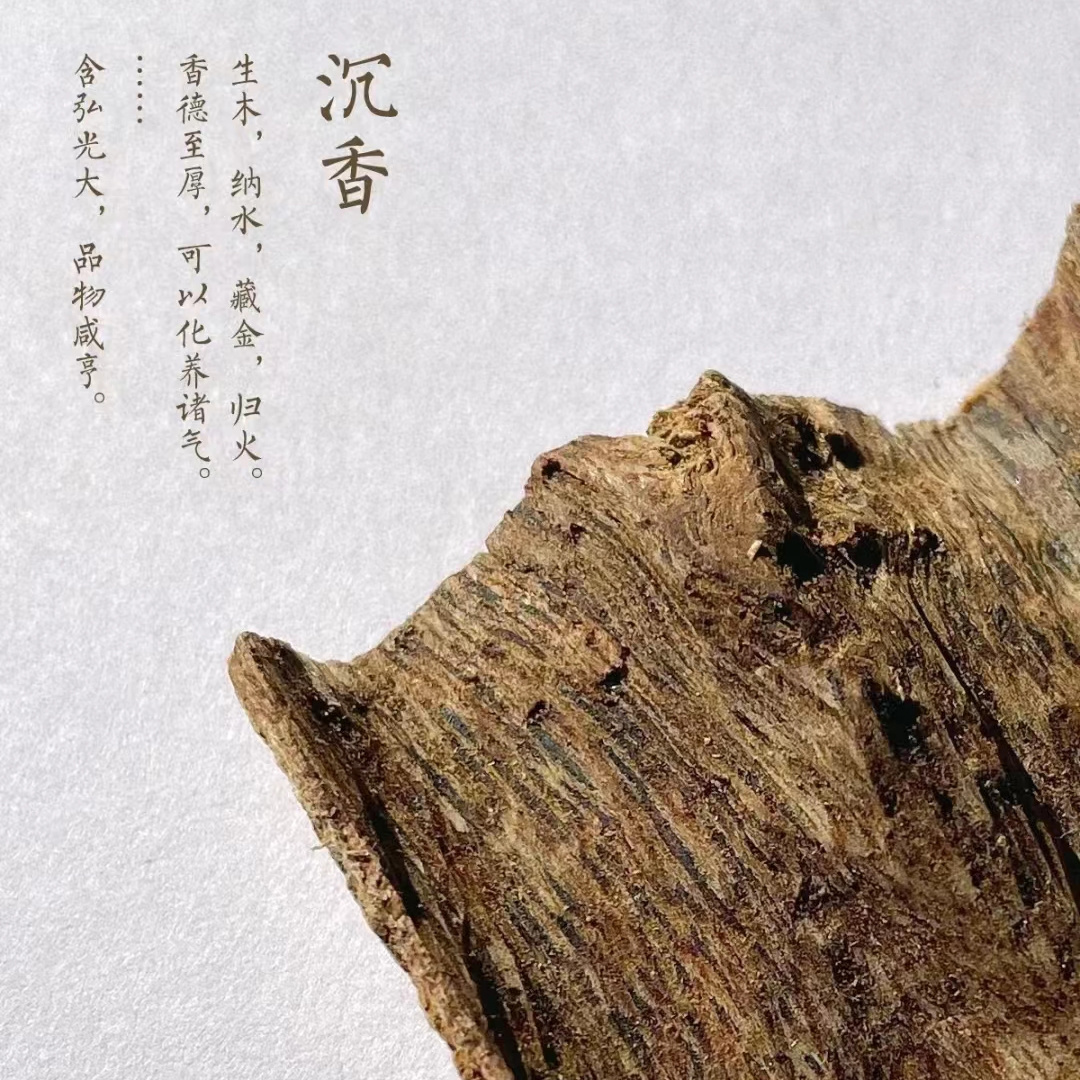 沉香
生木，纳水，藏金，归火。
香德至厚，可以化养诸气。
……
含弘光大，品物咸亨。